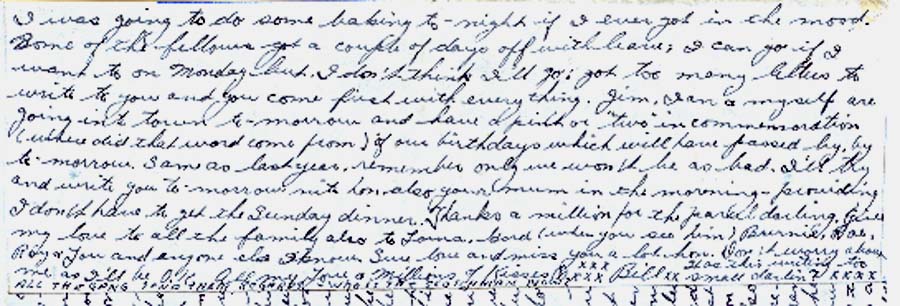 I was going to do some baking to-night if I ever got in the mood.
Some of the fellows got a couple of days off with leave; I can go if I
want to on Monday but I don't think I'll go; got too many letters to
write to you and you come first with everything. Jim, Ian & myself are
going into town to-morrow and have a pint or "two" in commemoration
(where did that word come from) of our birthdays which will have passed by, by
to-morrow. Same as last year, remember only we won't be as bad. I'll try
and write you to-morrow nite hon, also your mum in the morning - providing
I don't have to get the Sunday dinner. Thanks a million for the parcel darling. Give
my love to all the family also to Lorna, Gord (when you see him) Burnie, Rae,
Roy & You and anyone else I know. Sure love and miss you a lot hon. Don't worry about
me as I'll be O.K. All my Love & Millions of Kisses xxx Bill xx
ALL THE GANG SEND THEIR REGARDS